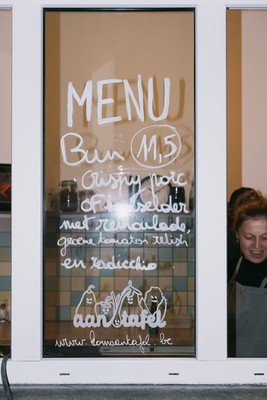 MENU
Bun 11,5
• Crispy porc
of knolselder
met remoulade,
groene tomaten relish
en radicchio
aan tafel
www.komaantafel.be